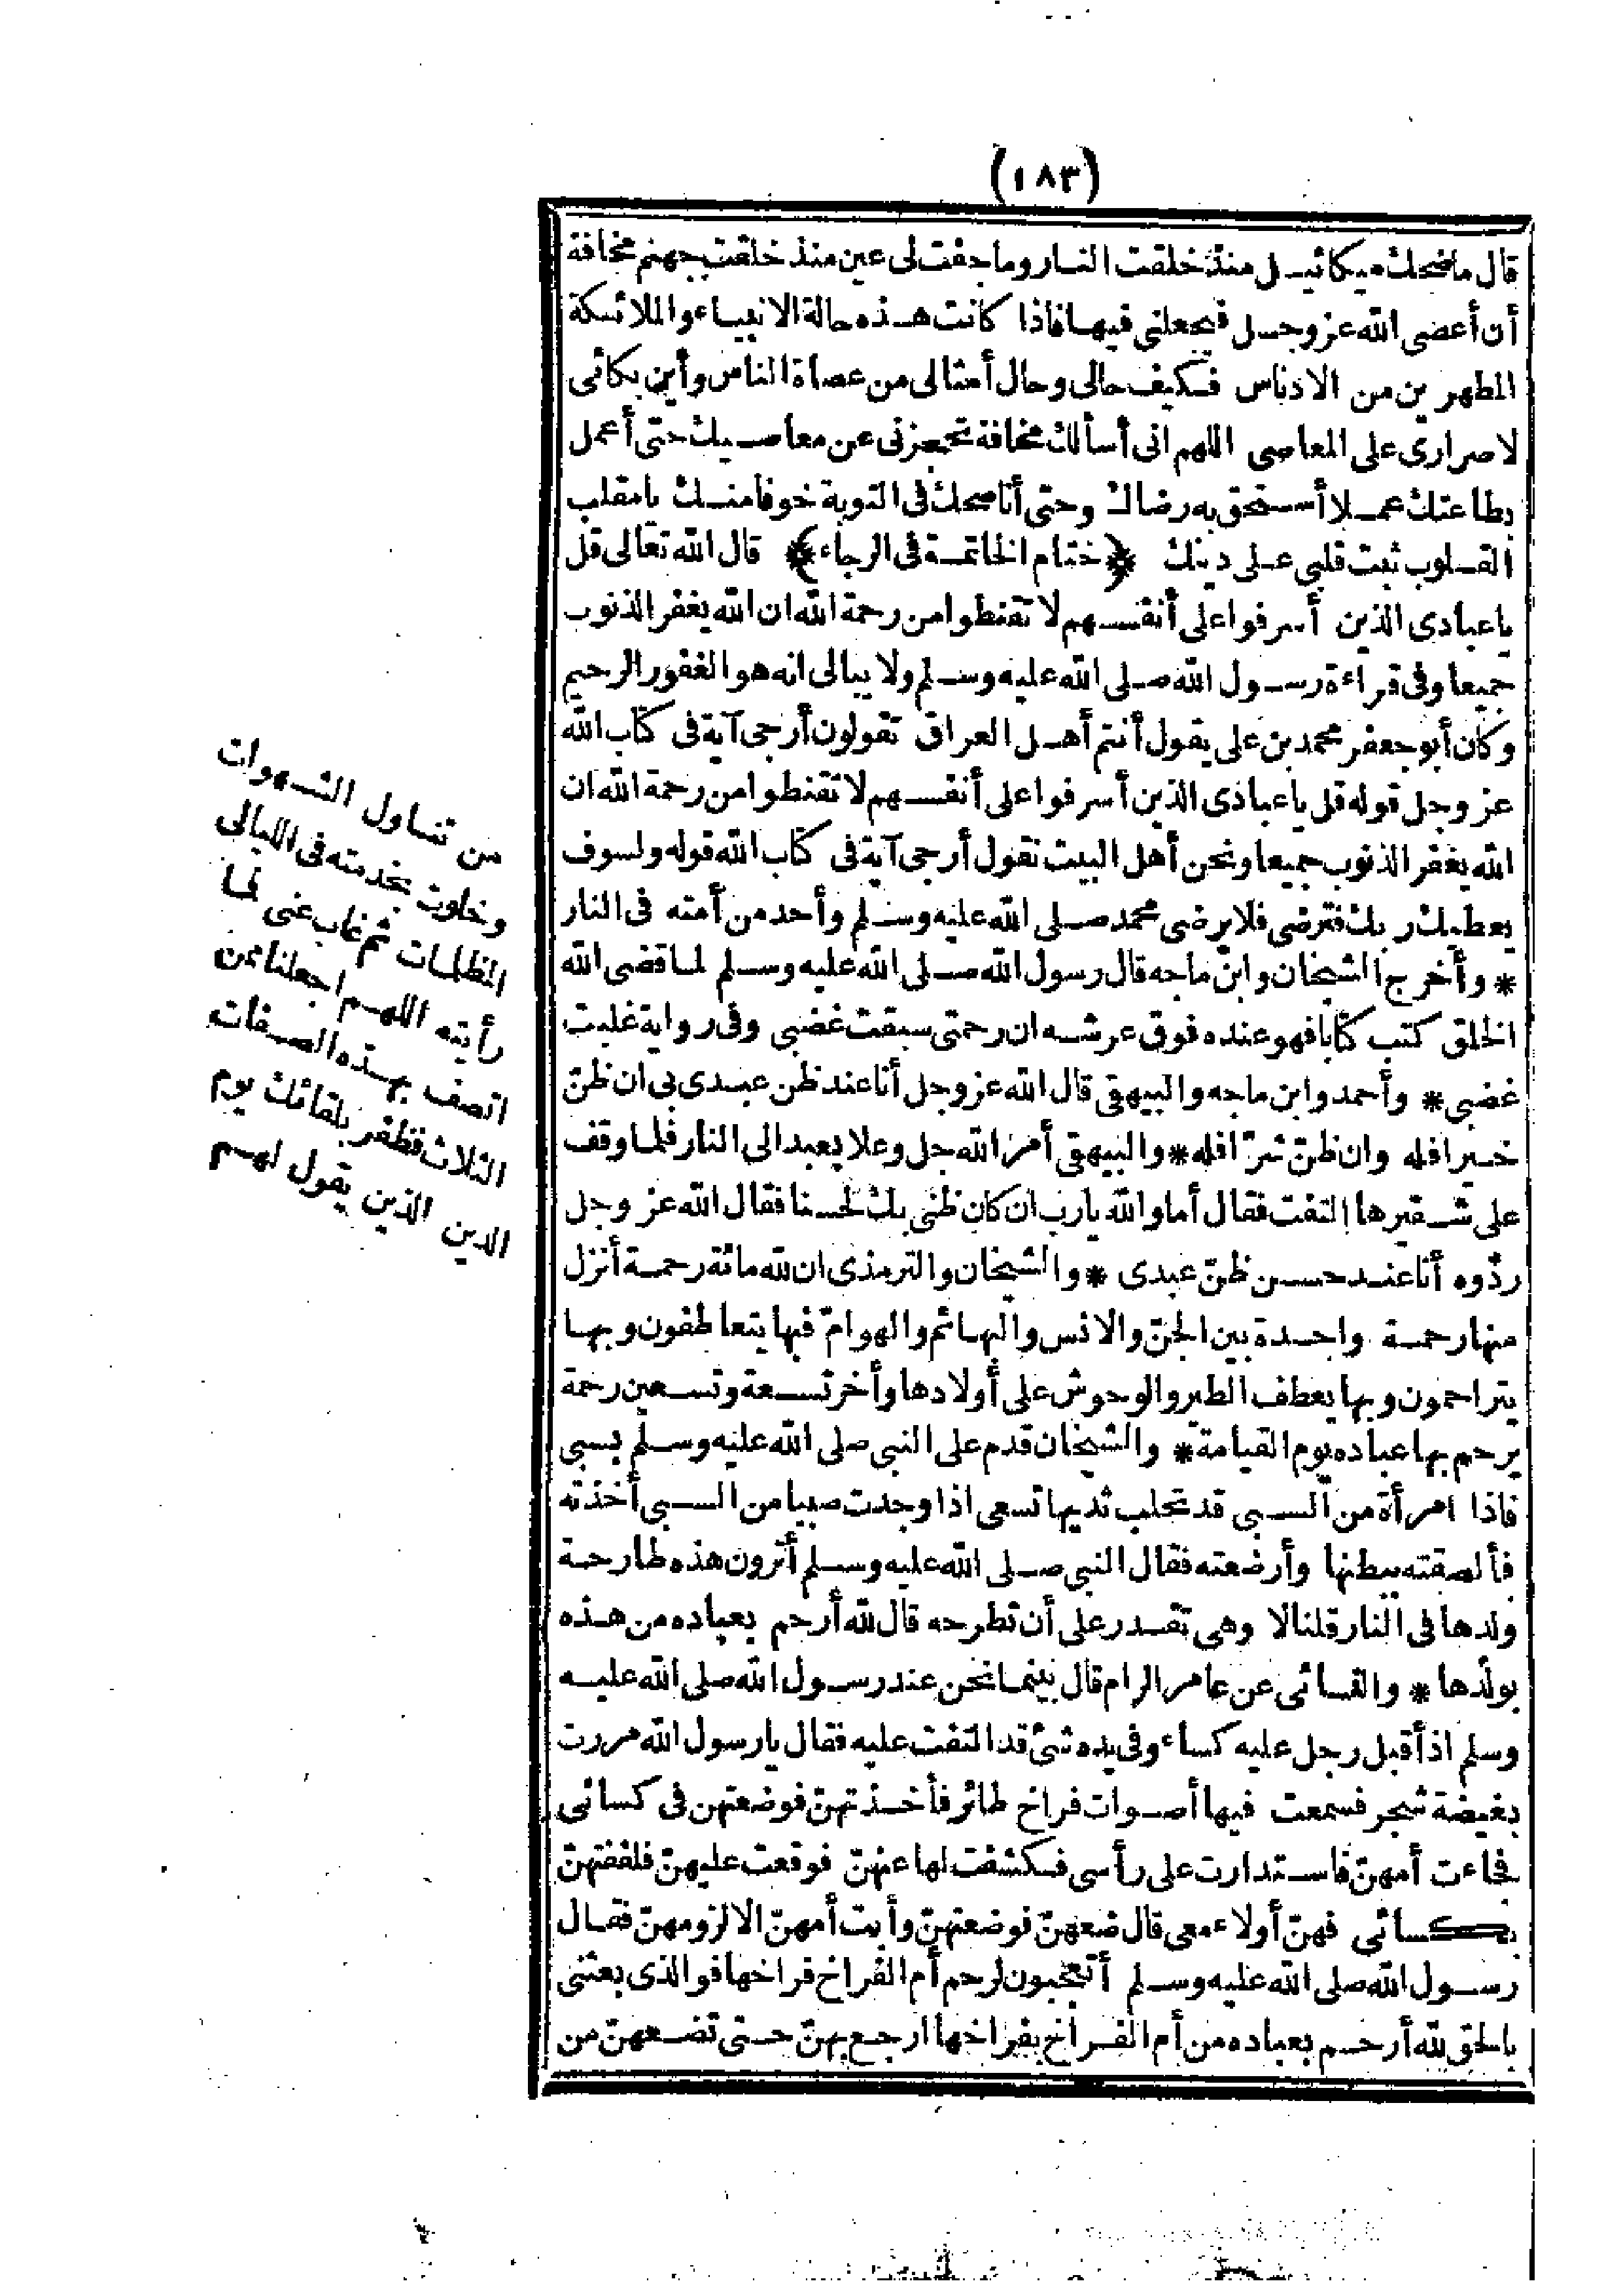 (١٨٣)
قال ما ضحك ميكائيل منذ خلقت النار وما جفت لى عين منذ خلقت جهنم مخافة
أن أعصى الله عز وجل فيجعلنى فيها فاذا كانت هذه حالة الانبياء والملائكة
المطهرين من الادناس فكيف حالى وحال أمثالى من عصاة الناس وأين بكائى
لاصرارى على المعاصى اللهم انى أسألك مخافة تحجزنى عن معاصيك حتى أعمل
بطاعتك عملا أستحق به رضاك وحتى أناصحك فى التوبة خوفا منك يا مقلب
القلوب ثبت قلبى على دينك ﴿ختام الخاتمة فى الرجاء﴾ قال الله تعالى قل
يا عبادى الذين أسرفوا على أنفسهم لا تقنطوا من رحمة الله ان الله يغفر الذنوب
جميعا وفى قراءة رسول الله صلى الله عليه وسلم ولا يبالى انه هو الغفور الرحيم
وكان أبو جعفر محمد بن على يقول أنتم أهل العراق تقولون أرجى آية فى كتاب الله
عز وجل قوله قل يا عبادى الذين أسرفوا على أنفسهم لا تقنطوا من رحمة الله ان
الله يغفر الذنوب جميعا ونحن أهل البيت نقول أرجى آية فى كتاب الله قوله ولسوف
يعطيك ربك فترضى فلا يرضى محمد صلى الله عليه وسلم وأحد من أمته فى النار
* وأخرج الشيخان وابن ماجه قال رسول الله صلى الله عليه وسلم لما قضى الله
الخلق كتب كتابا فهو عنده فوق عرشه ان رحمتى سبقت غضبى وفى رواية غلبت
غضبى * وأحمد وابن ماجه والبيهقى قال الله عز وجل أنا عند ظن عبدى بى ان ظنّ
خيرا فله وان ظنّ شرّا فله * والبيهقى أمر الله جل وعلا بعبد الى النار فلما وقف
على شفيرها التفت فقال أما والله يارب ان كان ظنى بك لحسنا فقال الله عز وجل
ردّوه أنا عند حسن ظنّ عبدى * والشيخان والترمذى ان لله مائة رحمة أنزل
منها رحمة واحدة بين الجنّ والانس والبهائم والهوامّ فبها يتعاطفون وبها
يتراحمون وبها يعطف الطير والوحوش على أولادها وأخر تسعة وتسعين رحمة
يرحم بها عباده يوم القيامة * والشيخان قدم على النبى صلى الله عليه وسلم بسبى
فاذا امرأة من السبى قد تحلب ثديها تسعى اذا وجدت صبيا من السبى أخذته
فألصقته ببطنها وأرضعته فقال النبى صلى الله عليه وسلم أترون هذه طارحة
ولدها فى النار قلنا لا وهى تقدر على أن تطرحه قال لله أرحم بعباده من هذه
بولدها * والنسائى عن عامر الرام قال بينما نحن عند رسول الله صلى الله عليه
وسلم اذ أقبل رجل عليه كساء وفى يده شئ قد التفت عليه فقال يا رسول الله مررت
بغيضة شجر فسمعت فيها أصوات فراخ طائر فأخذتهنّ فوضعتهن فى كسائى
فجاءت أمهنّ فاستدارت على رأسى فكشفت لها عنهنّ فوقعت عليهنّ فلففتهنّ
بكسائى فهنّ أولاء معى قال ضعهنّ فوضعتهنّ وأبت أمهنّ الا لزومهنّ فقال
رسول الله صلى الله عليه وسلم أتعجبون لرحم أم الفراخ فراخها فو الذى بعثنى
بالحق لله أرحم بعباده من أم الفراخ بفراخها ارجع بهنّ حتى تضعهنّ من
من تناول الشهوات
وخلوت بخدمته فى الليالى
المظلمات ثم غاب عنى فما
رأيته اللهم اجعلنا ممن
اتصف بهذه الصفات
الثلاث فظفر بلقائك يوم
الدين الذين يقول لهم